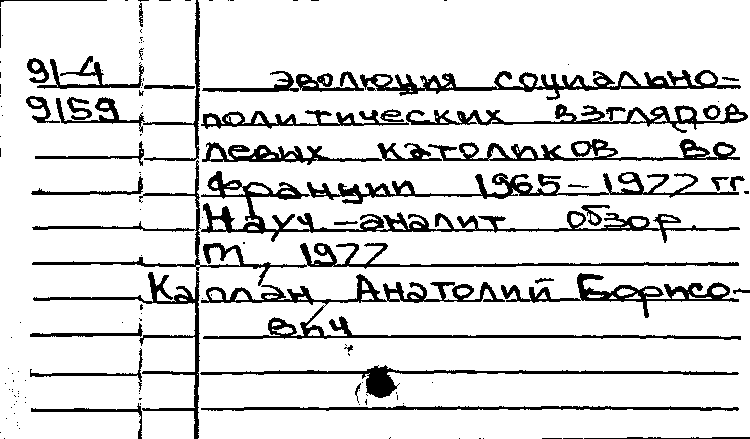 91-4 эволюция социально-
9159 политических взглядов
левых католиков во
Франции 1965-1977 гг.
Науч.-аналит. обзор.
М, 1977
Каплан, Анатолий Борисо-
вич